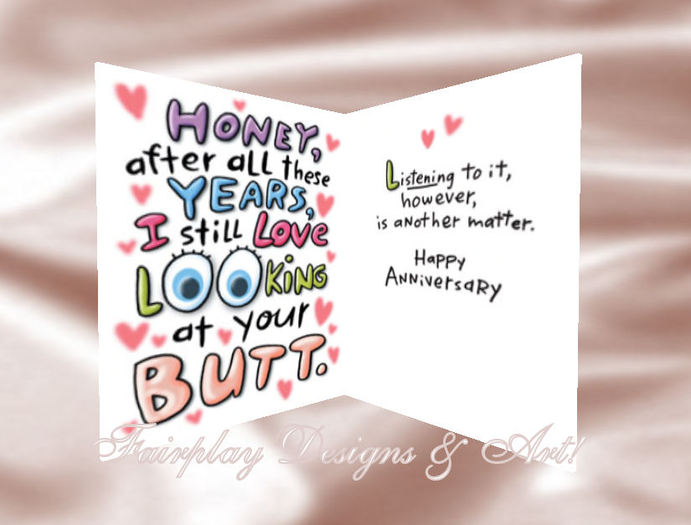 HONEY,
after all these
YEARS,
I still Love
LOOKING
at your
BUTT.
Listening to it,
however,
is another matter.
Happy
Anniversary
Fairplay Designs & Art!